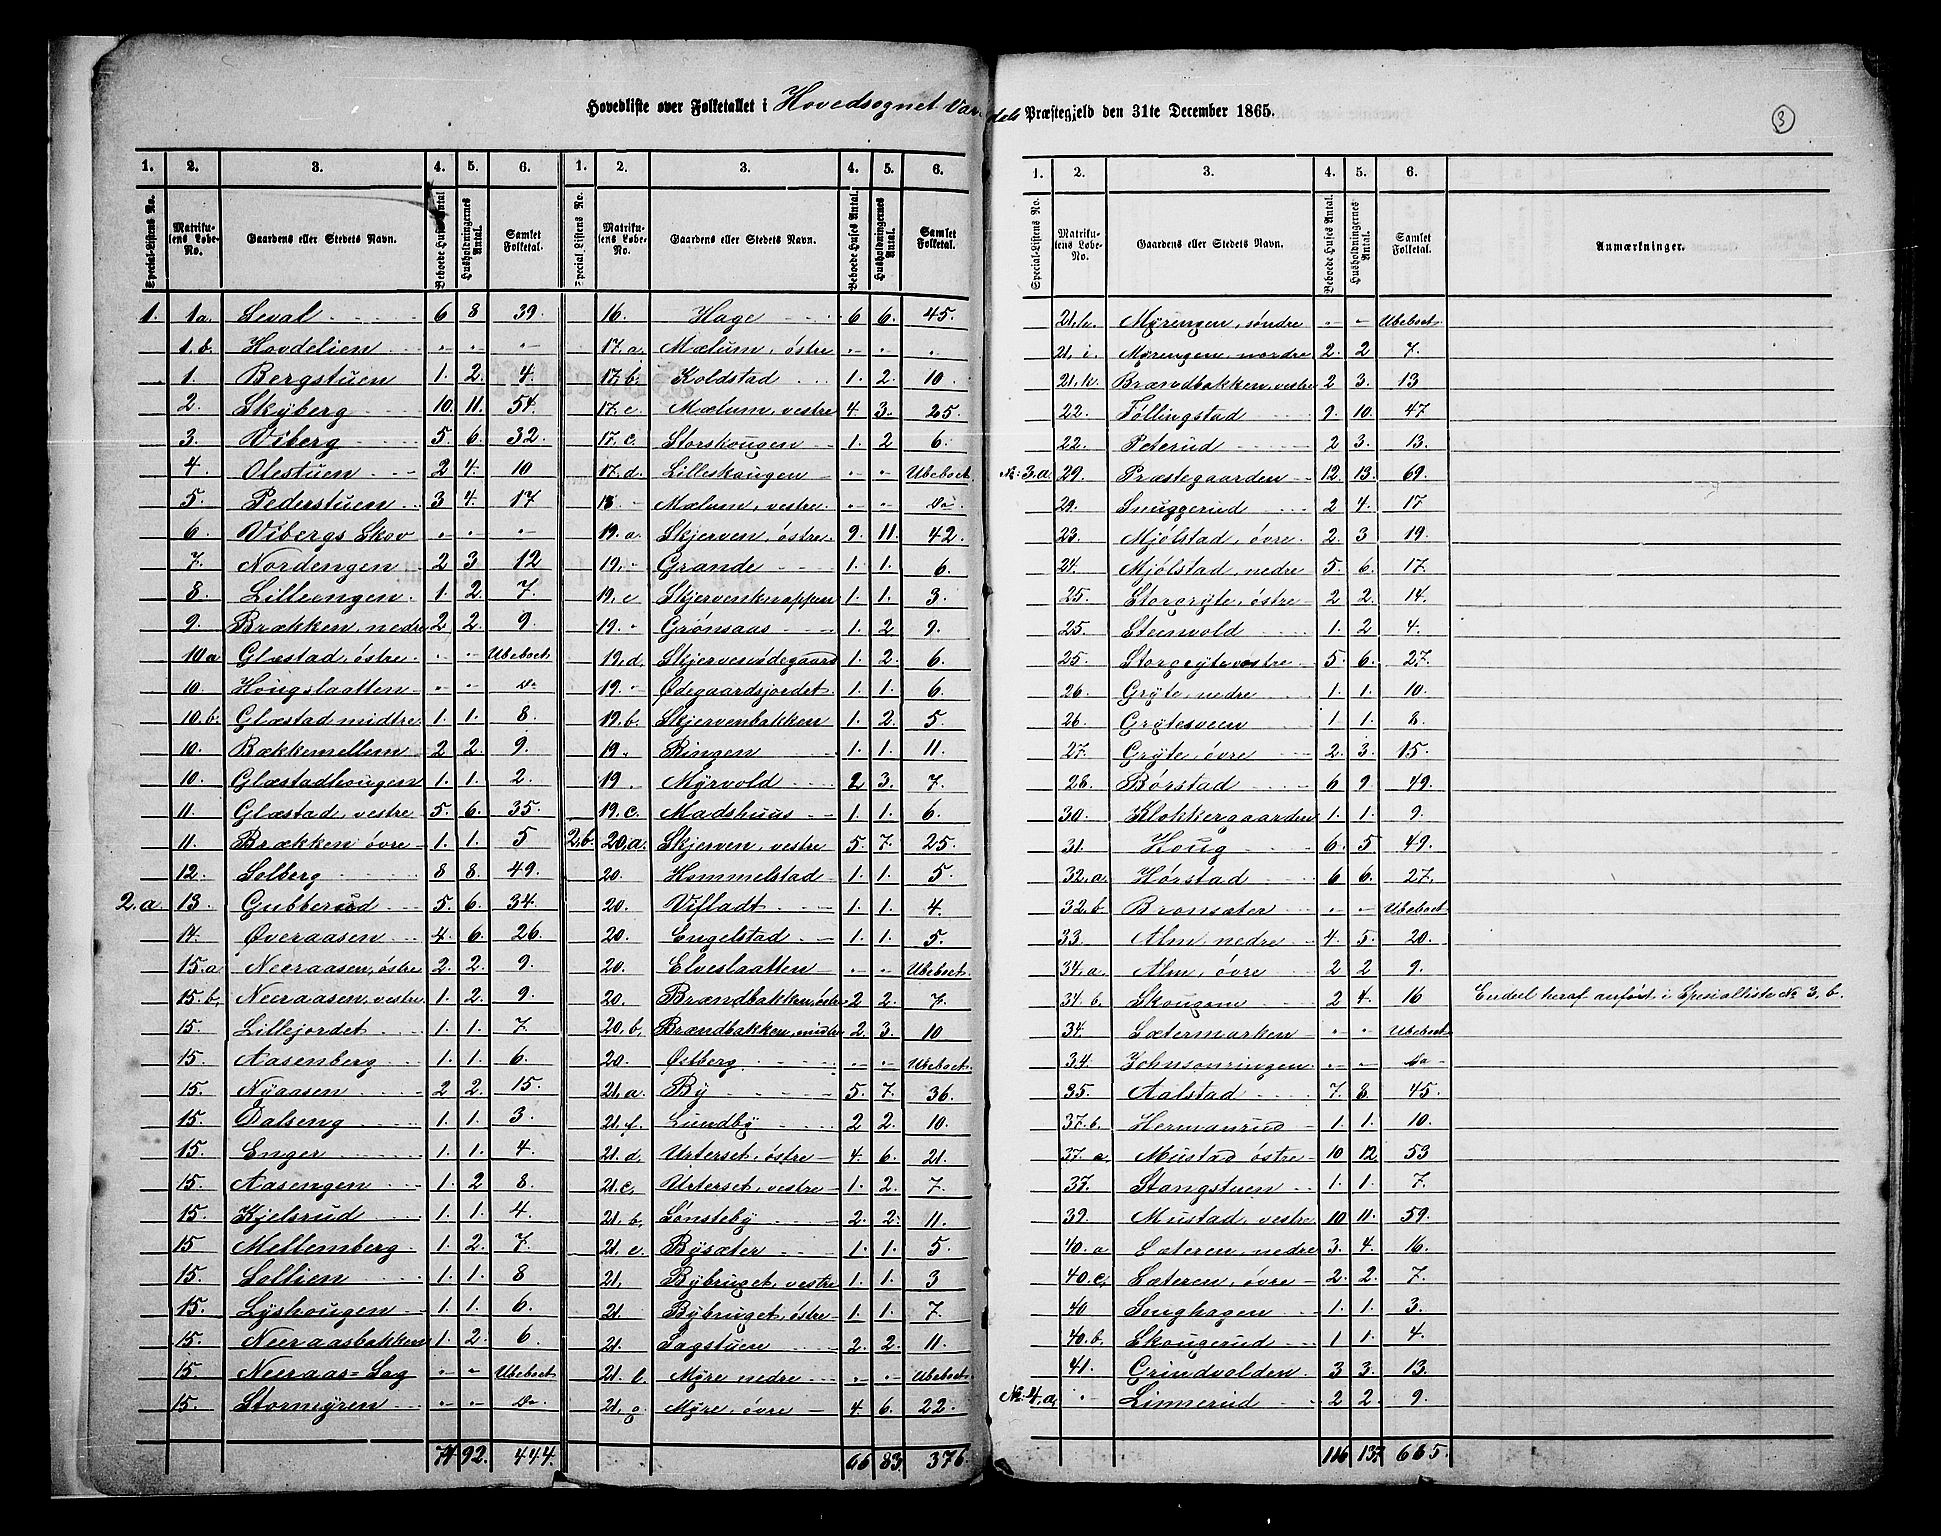 Hovedliste over Folketallet i Hovedsognet Vardals Præstegjeld den 31te December 1865.
3
1. 2. 3. 4. 5. 6. 1. 2. 3. 4. 5. 6.
Special-Listens No. Matrikulens Løbe-No. Gaardens eller Stedets Navn. Beboede Huses Antal Husholdningernes Antal. Samlet Folketal. Special-Listens No. Matrikulens Løbe-No. Gaardens eller Stedets Navn. Beboede Huses Antal. Husholdningernes Antal. Samlet Folketal.
1. 1a Seval 6 8 39.
1.b. Hovdelien " " "
1. Bergstuen 1. 2. 4.
2. Skÿberg 10. 11. 54.
3. Viberg 5. 6. 32.
4. Olestuen 2 4. 10
5. Pederstuen 3 4. 17
6. Vibergs Skov " " "
7. Nordengen 2 3 12
8. Lilleengen 1. 2. 7.
9. Brækken, nedre 2 2. 9.
10a Glæstad, østre " " Ubeboet
10. Hougslaatten " " Do
10.b. Glæstad midtre 1. 1. 8.
10. Bækkemellem 2 2. 9.
10. Glæstadhougen 1. 1. 2.
11. Glæstad, vestre 5. 6. 35.
11. Brækken øvre 1. 1. 5
12. Solberg 8 8. 49.
2.a 13. Gubberud 5. 6. 34.
14. Øveraasen 4. 6. 26.
15.a Neeraasen, østre 2. 2. 9.
15.b. Neeraasen, vestre 1. 2. 9.
15. Lillejordet 1. 1. 7
15. Aasenberg 1. 1. 6.
15. Nÿaasen 2 2. 15.
15. Dalseng 1. 1. 3.
15. Enger 1. 1. 4
15. Aasengen 1. 2 8.
15. Kjelsrud 1. 1. 4
15 Mellemberg 1. 2. 7.
15 Sollien 1. 1. 8
15. Lÿshougen 1. 1. 6.
15. Neeraasbakken 1. 2 6.
15. Neeraas=Sag " " Ubeboet
15. Stormÿren " " Do
74 92. 444.
16. Hage 6 6. 45.
17.a. Mælum, østre " " "
17.b. Koldstad 1. 2. 10
17.c. Mælum, vestre 4. 3. 25.
17.c. Storskougen 1. 2 6.
17.d. Lilleskougen " " Ubeboet
18 Mælum, vestre " " Do
19.a. Skjerven, østre 9. 11. 42.
19. " Grande 1. 1. 6.
19.c Skjervenknappen 1. 1. 3.
19. " Grønsaas 1. 2 9.
19.d. Skjervenødegaard 1. 2. 6.
19. " Ødegaardsjordet 1. 1. 6.
19.b. Skjervenbakken 1. 2. 5.
19 " Ringen 1. 1. 11.
19 Mÿrvold 2 3. 7.
19.c. Madshuus 1. 1. 6.
2.b. 20.a. Skjerven, vestre 5. 7. 25.
20 Hommelstad 1. 1. 5
20. Vifladt 1. 1. 4.
20. Engelstad 1. 1. 5.
20. Elveslaatten " " Ubeboet
20. Brændbakken, østre 2 2. 7.
20.b. Brændbakken, midtre 2. 3. 10
20. Østberg " " Ubeboet
21.a. Bÿ 5. 7. 36.
21.f. Lundbÿ 2 2. 10.
21.d. Urterset, østre 4. 6. 21.
21.c. Urterset, vestre 1. 2. 7.
21.b. Sønstebÿ 2. 2. 11.
21.e. Bÿsæter 1. 1. 5
21. Bÿbruget, vestre 1. 1. 3
21. Bÿbruget, østre 1. 1. 7.
21. Sagstuen 2. 2. 11.
21.f. Mÿre nedre " " Ubeboet
21.g. Mÿre, øvre 4. 6. 22.
66 83. 376.
1. 2. 3. 4. 5. 6.
Special-Listens No. Matrikulens Løbe-No. Gaardens eller Stedets Navn. Beboede Huses Antal. Husholdningernes Antal. Samlet Folketal. Anmærkninger.
21.h. Mÿrengen, søndre " " Ubeboet
21.i. Mÿrengen, nordre 2. 2 7.
21.k. Brændbakken, vestre 2 3. 13
22. Føllingstad 9. 10. 47
22. Peterud 2 3. 13.
No: 3.a. 29. Præstegaarden 12. 13. 69.
29. Snuggerud 2 4. 17
23. Mjølstad, øvre 2. 3 19.
24. Mjølstad, nedre 5. 6. 17.
25. Storgrÿte, østre 2 2. 14.
25. Steenvold 1. 2 4.
25. Storgrÿte vestre 5. 6. 27.
26. Grÿte, nedre 1. 1. 10.
26. Grÿtesveen 1 1. 8.
27. Grÿte, øvre 2. 3. 15.
28. Børstad 6 9. 49.
30. Klokkergaarden 1. 1. 9.
31. Houg 6. 5. 49.
32.a. Hørstad 6 6. 27.
32.b. Bronsæter " " Ubeboet
33. Alm, nedre 4. 5. 20.
34.a. Alm, øvre 2 2 9.
34.b. Skougene 2 4. 16 Endeel heraf anført i Specialliste No 3, b.
34. Sætermarken " " Ubeboet
34. Johnsonringen " " Do
35. Aalstad 7. 8. 45.
37.b. Hermanrud 1. 1. 10.
37.a. Mustad østre 10 12 53
37. Stangstuen 1. 1. 7.
39. Mustad, vestre 10 11. 59.
40.a. Sæteren, nedre 3. 4. 16.
40.c. Sæteren, øvre 2. 2. 7.
40 Songhagen 1. 1. 3.
40.b. Skougerud 1 1. 4.
41. Grindvolden 3 3. 13.
No: 4.a. " Linnerud 2 2. 9.
116 137 665.